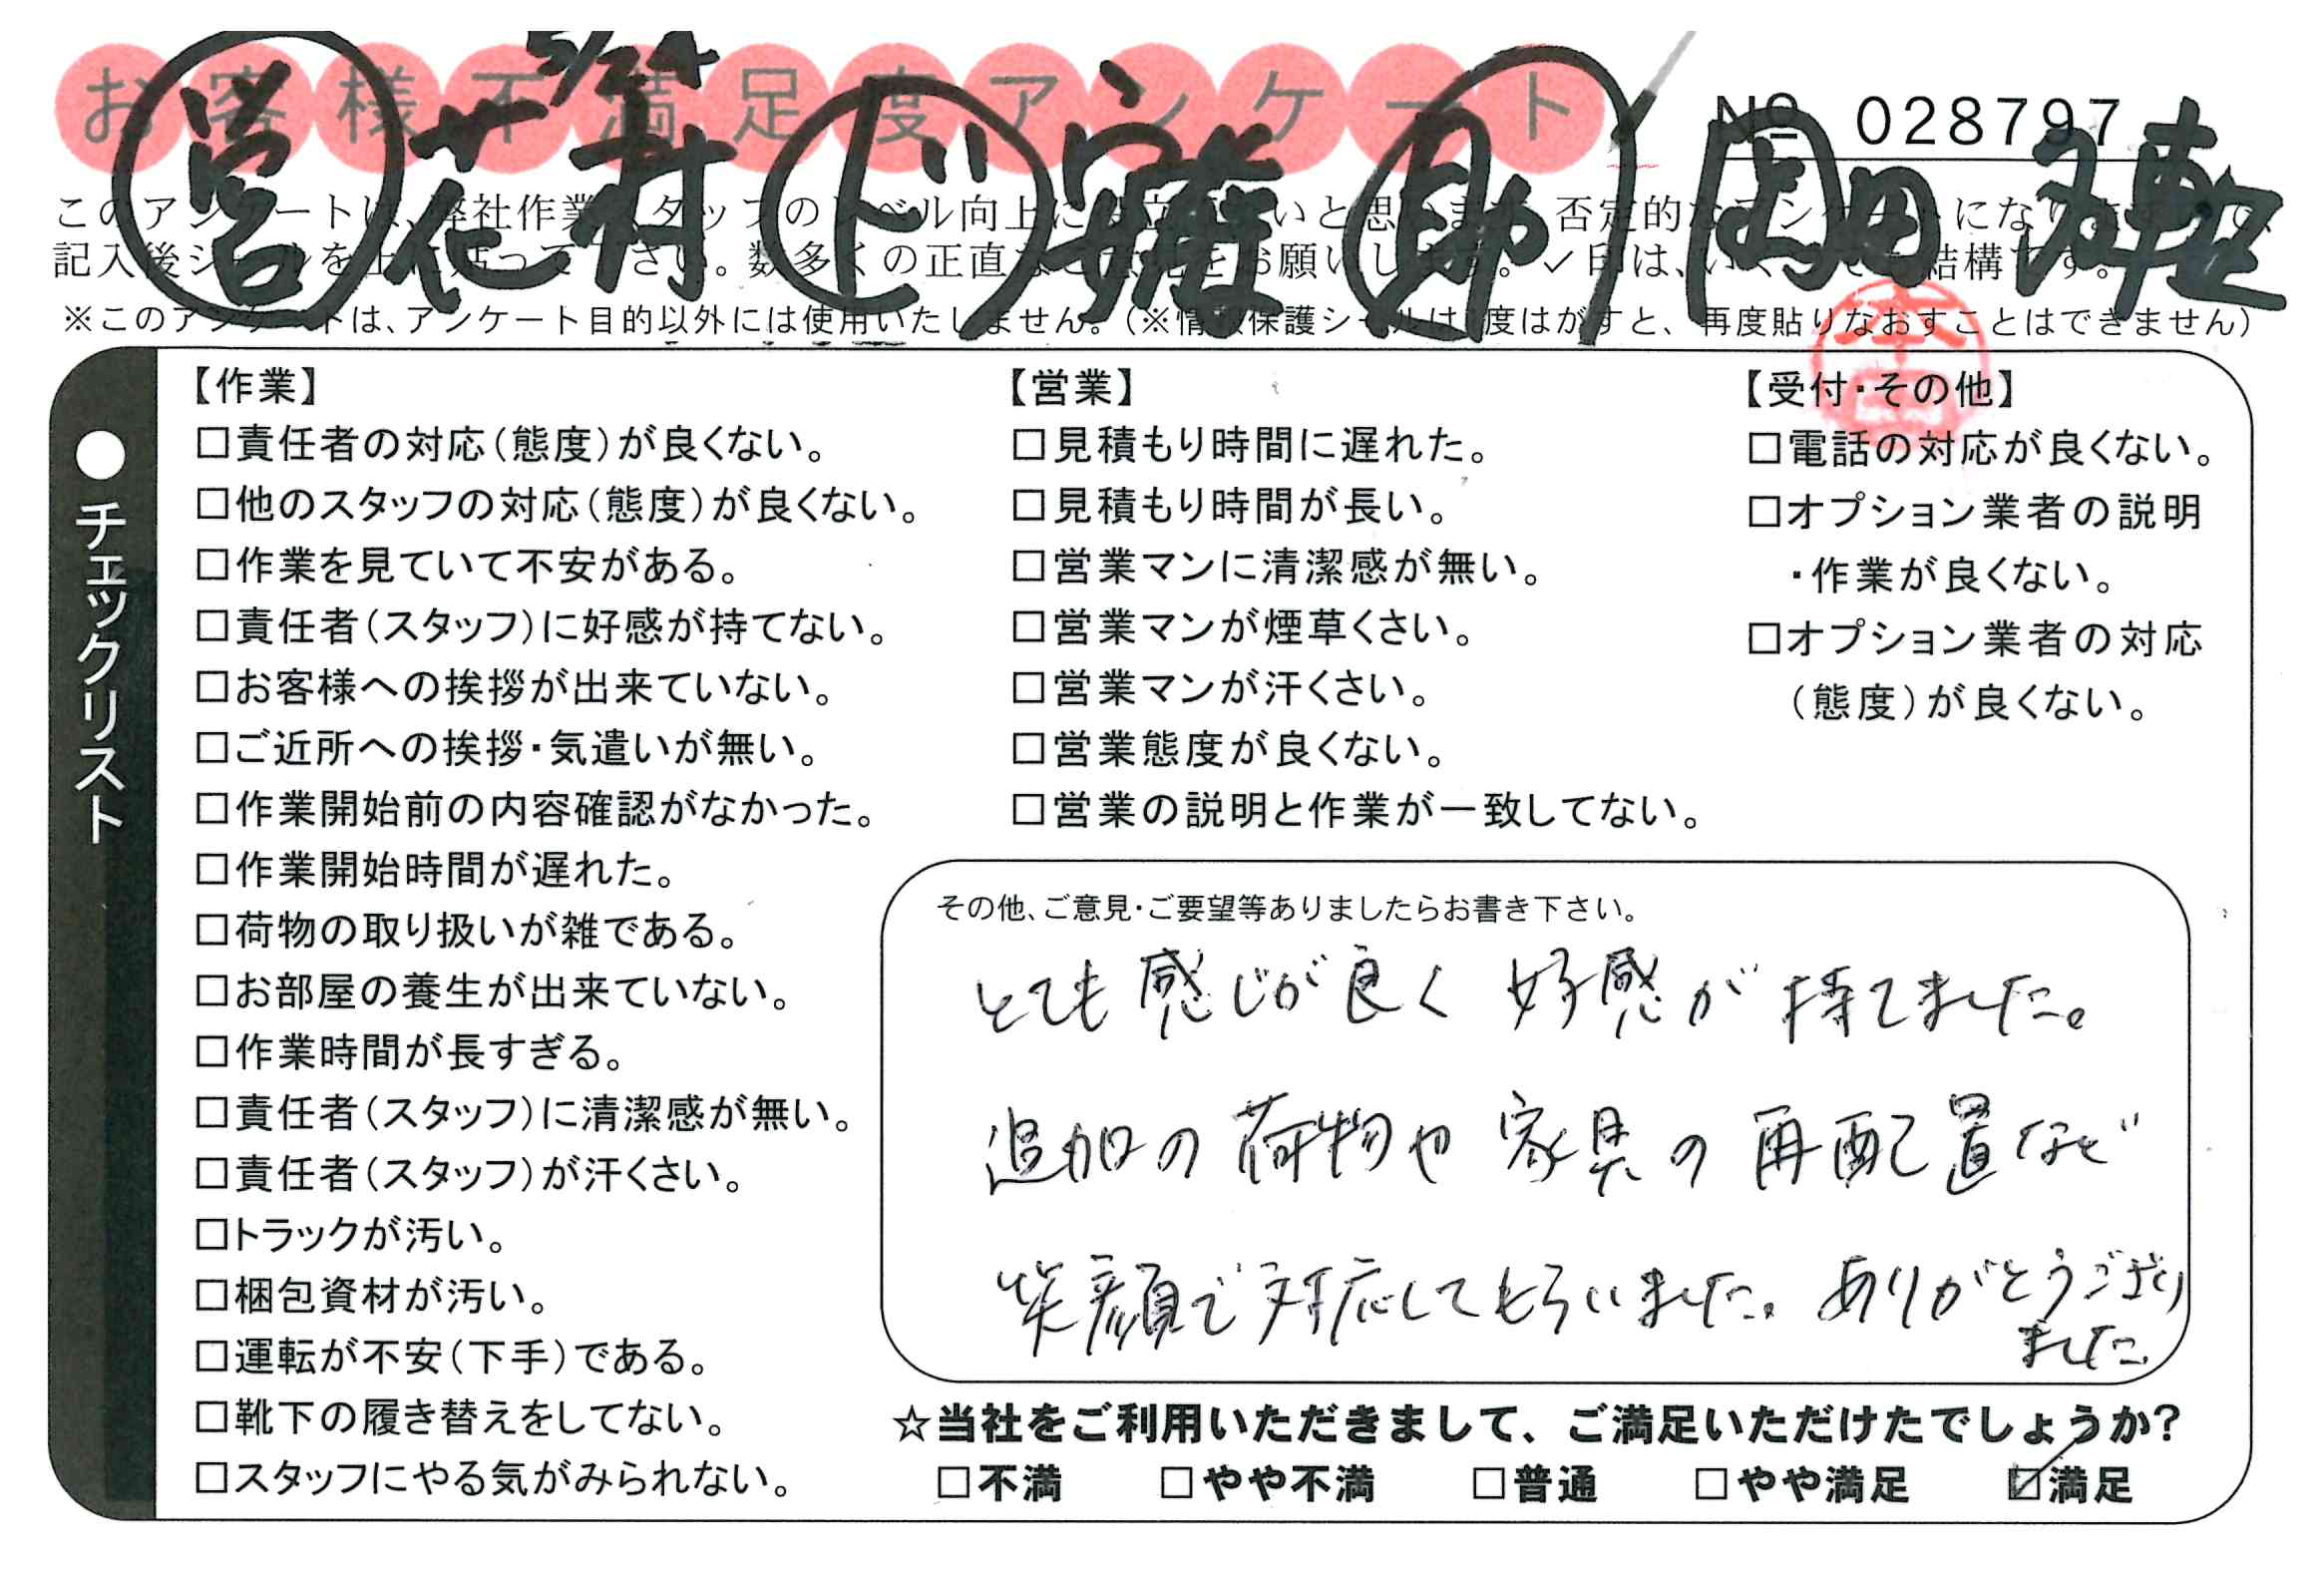 お客様不満足度アンケート
5/24
№ 028797
営 花村 ド 安 助 岡田
※このアンケートは、アンケート目的以外には使用いたしません。(※情報保護シールは1度はがすと、再度貼りなおすことはできません)
●チェックリスト
【作業】
□責任者の対応(態度)が良くない。
□他のスタッフの対応(態度)が良くない。
□作業を見ていて不安がある。
□責任者(スタッフ)に好感が持てない。
□お客様への挨拶が出来ていない。
□ご近所への挨拶・気遣いが無い。
□作業開始前の内容確認がなかった。
□作業開始時間が遅れた。
□荷物の取り扱いが雑である。
□お部屋の養生が出来ていない。
□作業時間が長すぎる。
□責任者(スタッフ)に清潔感が無い。
□責任者(スタッフ)が汗くさい。
□トラックが汚い。
□梱包資材が汚い。
□運転が不安(下手)である。
□靴下の履き替えをしてない。
□スタッフにやる気がみられない。
【営業】
□見積もり時間に遅れた。
□見積もり時間が長い。
□営業マンに清潔感が無い。
□営業マンが煙草くさい。
□営業マンが汗くさい。
□営業態度が良くない。
□営業の説明と作業が一致してない。
【受付・その他】
□電話の対応が良くない。
□オプション業者の説明
・作業が良くない。
□オプション業者の対応
(態度)が良くない。
その他、ご意見・ご要望等ありましたらお書き下さい。
とても感じが良く 好感が持てました。
追加の荷物や家具の再配置など
笑顔で対応してもらいました。ありがとうござり
ました
☆当社をご利用いただきまして、ご満足いただけたでしょうか?
□不満 □やや不満 □普通 □やや満足 ☑満足